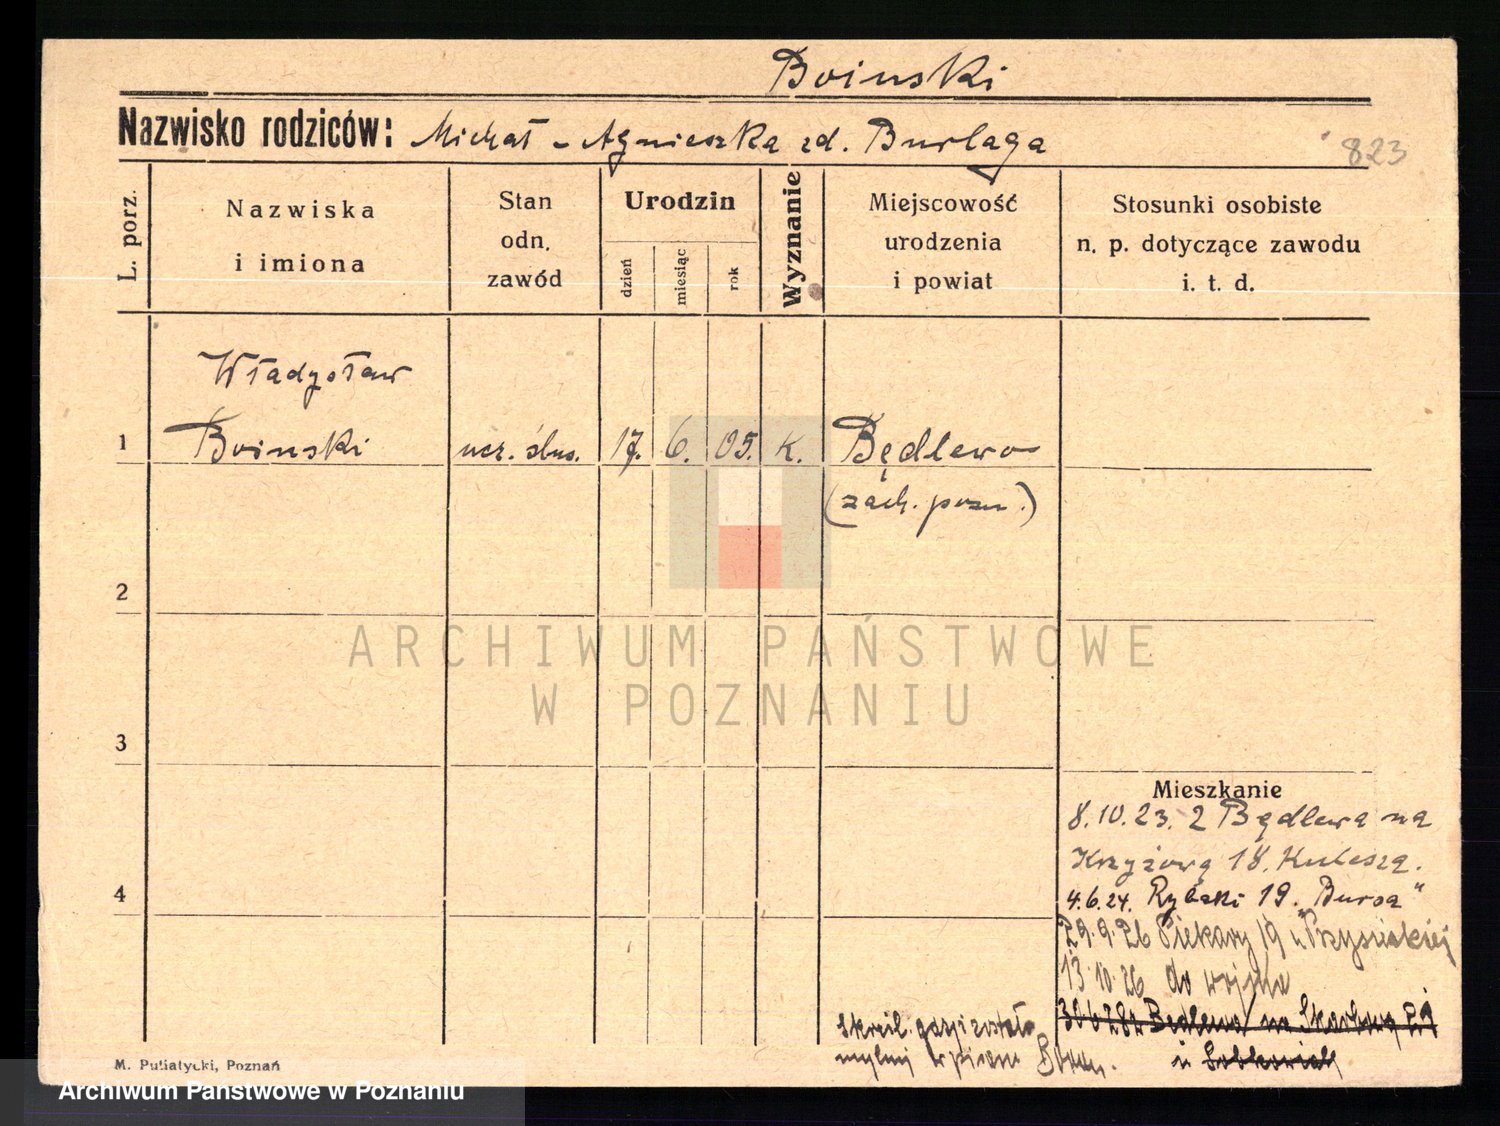 Boinski
Nazwisko rodziców: Michał - Agnieszka zd. Burlaga
823
L. porz.
Nazwiska
i imiona
Stan
odn.
zawód
Urodzin
dzień
miesiąc
rok
Wyznanie
Miejscowość
urodzenia
i powiat
Stosunki osobiste
n. p. dotyczące zawodu
i. t. d.
Władysław
1 Boinski ucz. ślus. 17. 6. 05. K. Będlewo
(zach. pozn.)
2
3
4
Mieszkanie
8.10.23. z Będlewa na
Krzyżową 18. Kulesza.
4.6.24. Rybaki 19. "Bursa"
29.9.26 Piekary 19 u
13.10.26 do wojska
30 6 28 z Bedlewa na Skarbową 21
u
skreśl. gdyż została
mylnie wpisane
M. Putiatycki, Poznań
ARCHIWUM PAŃSTWOWE
W POZNANIU
Archiwum Państwowe w Poznaniu